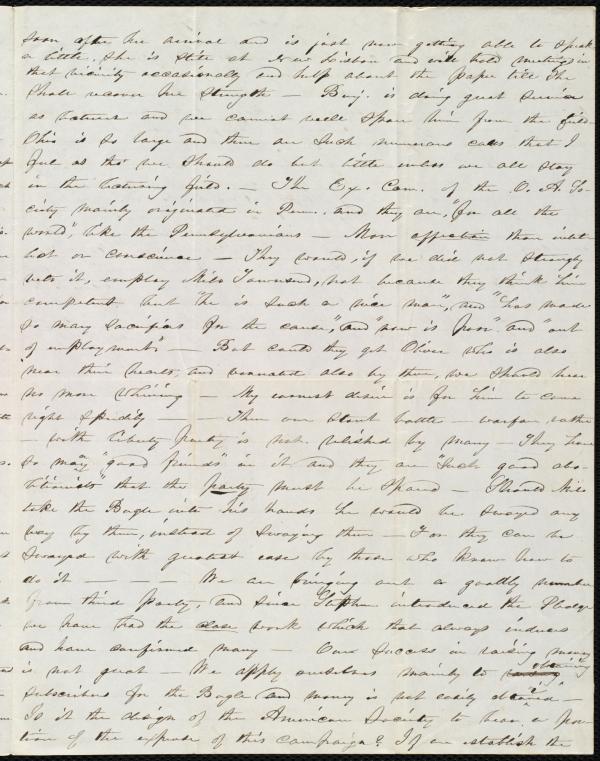 soon after her arrival and is just now getting able to speak
a little. She is still at New Lisbon and will hold meetings in
that vicinity occasionally and help about the paper till She
Shall recover her Strength — Benj. is doing great Service
as Lecturer and we cannot well Spare him from the field
Ohio is so large and there are Such numerous calls that I
feel as tho' we Should do but little unless we all Stay
in the Lecturing field. — The Ex. Com. of the O. A. So-
ciety mainly originated in Penn. and they are, "for all the
world", like the Pennsylvanians — More affection than intel-
lect or conscience — They would, if we did not Strongly
veto it, employ Milo Townsend, not because they think him
competent but "he is Such a nice man", and "has made
So many Sacrifices for the cause", and "now is poor" and "out
of employment". — But could they get Oliver who is also
near their hearts, and venerated also by them, we Should hear
no more whining — My earnest desire is for him to come
right Speedily — — Then our Stout battle — warfare rather
— with Liberty party is not relished by many — They have
So many "good friends" in it and they are "Such good abo-
litionists" that the party must be Spared — Should Milo
take the Bugle into his hands he would be Swayed any
way by them, instead of Swaying them — For they can be
Swayed with greatest ease by those who know how to
do it — — — We are bringing out a goodly number
from third party, and Since Stephen introduced the Pledge
we have had the close work which that always induces
and have confirmed many — Our Success in raising money
is not great — We apply ourselves mainly to obtaining
Subscribers for the Bugle and money is not easily obtained —
Is it the design of the American Society to bear a por-
tion of the expense of this campaign? If we establish the